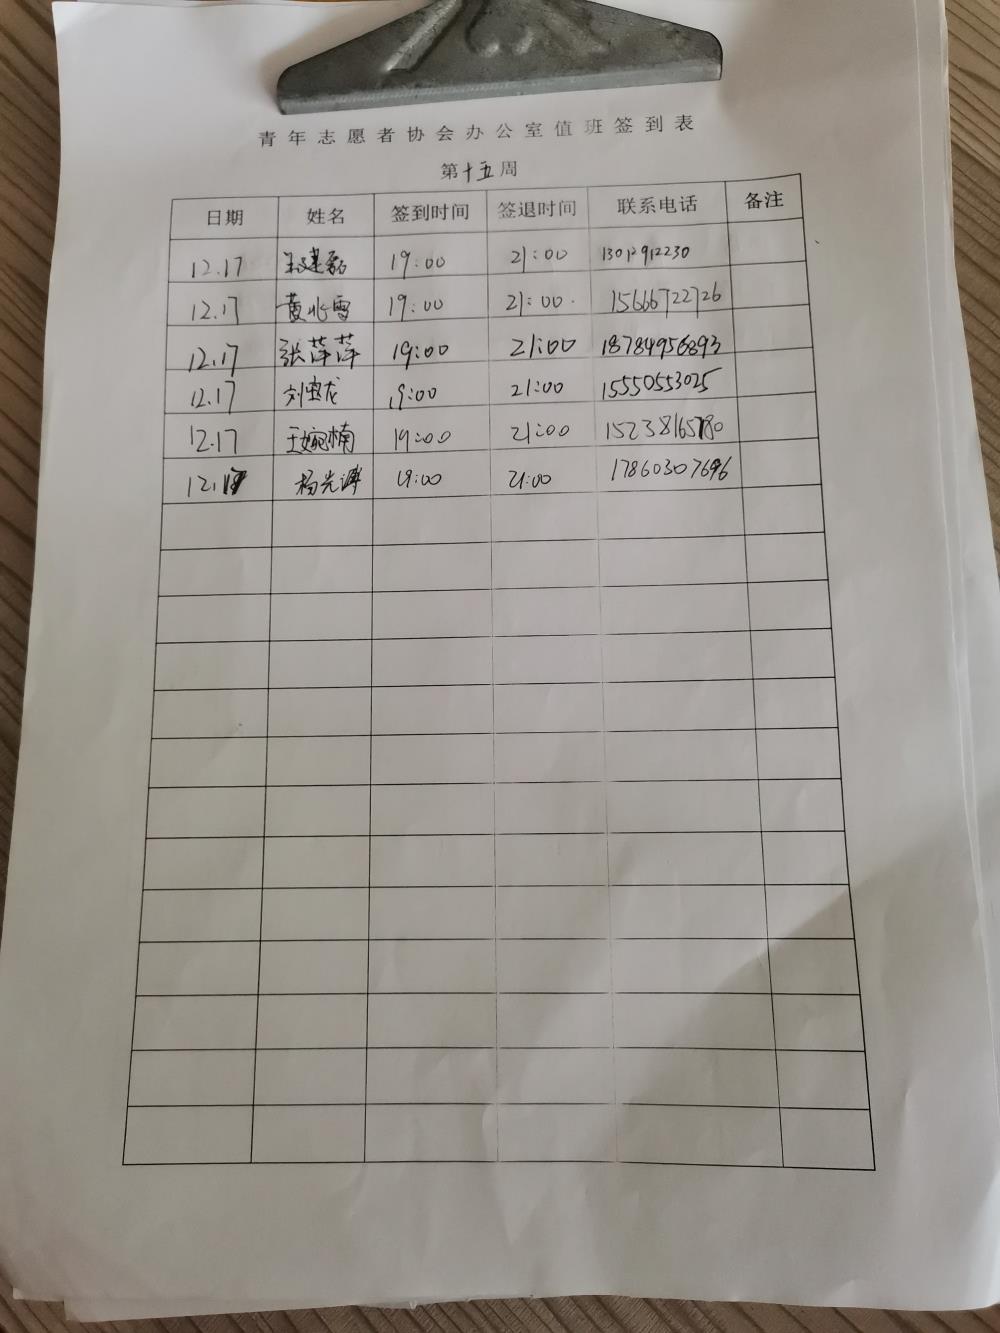 青年志愿者协会办公室值班签到表
第十五周
日期 姓名 签到时间 签退时间 联系电话 备注
12.17 19:00 21:00
12.17 黄兆雪 19:00 21:00. 15666722726
12.17 张萍萍 19:00 21:00 18784956893
12.17 刘宝龙 19:00 21:00 15550553025
12.17 王婉楠 19:00 21:00 15238165780
杨光谭 19:00 21:00 17860307696